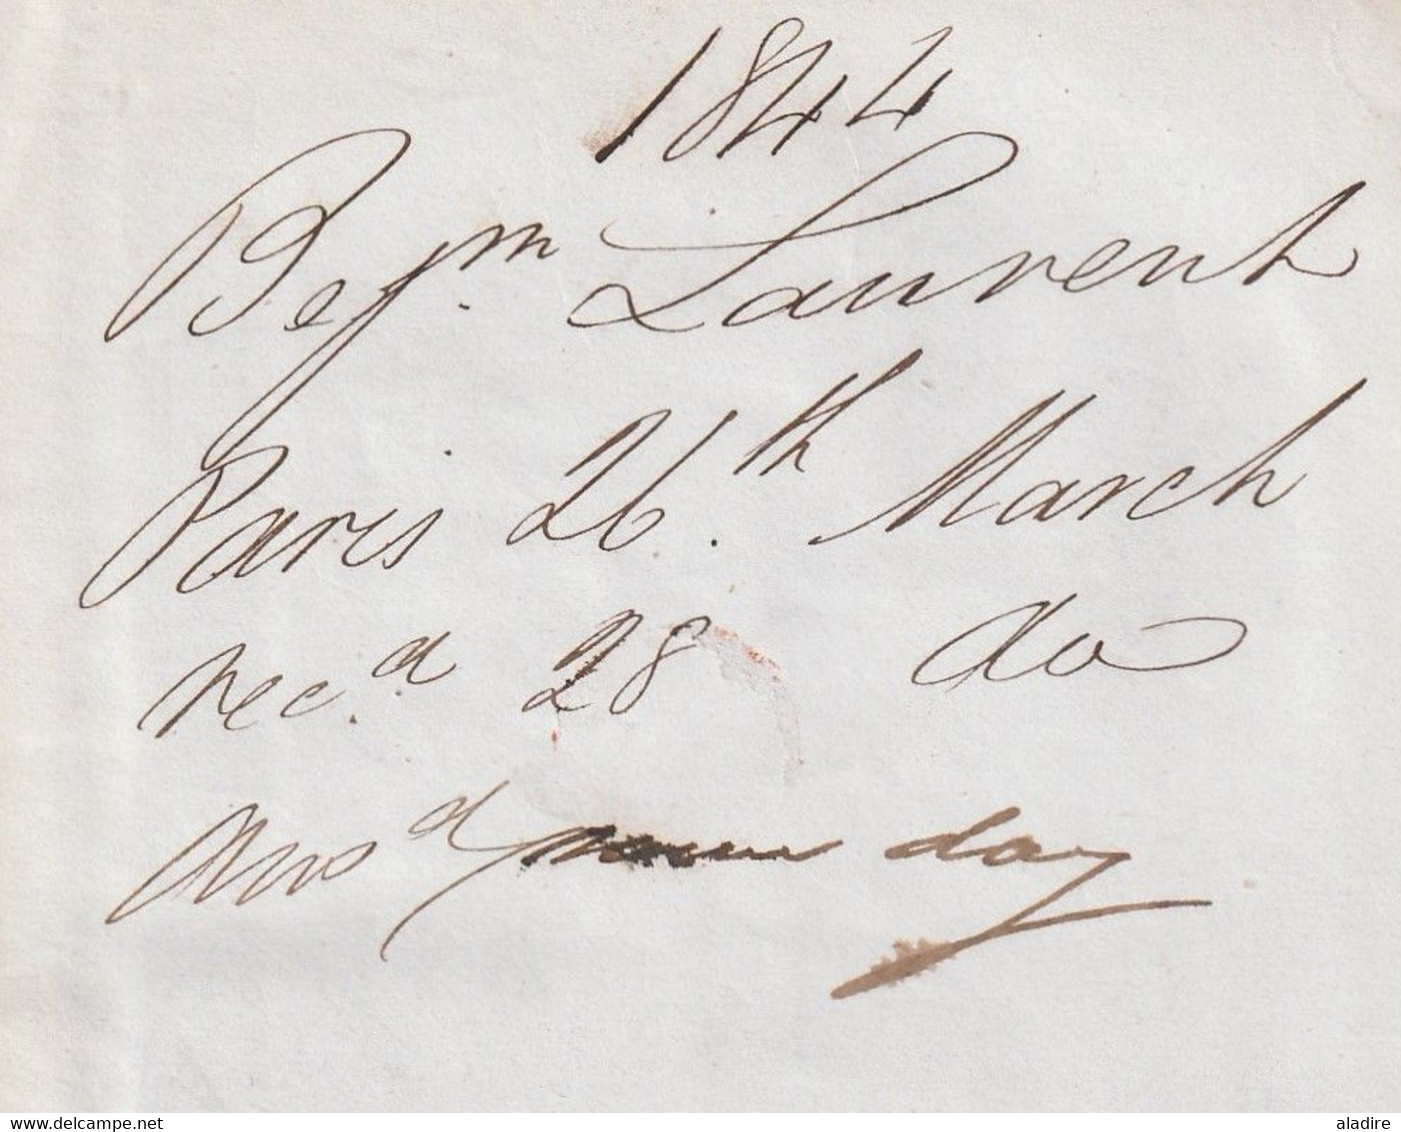 1844
Bejm. Laurent
Paris 26th. March
rec.d 28 do
Ans.d day
www.delcampe.net aladire